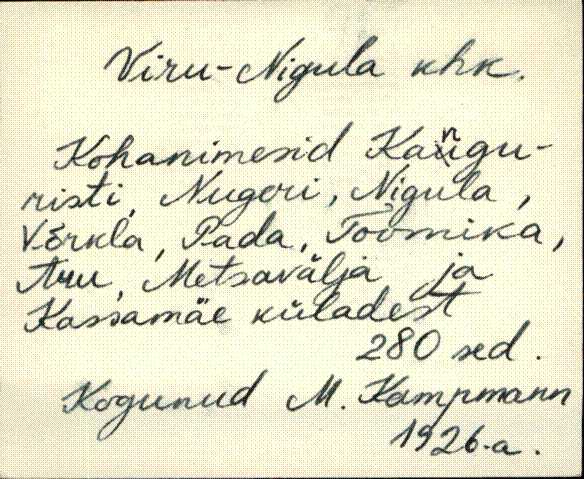 Viru-Nigula khk.
Kohanimesid Kangu-
risti, Nugeri, Nigula,
Võrkla, Pada, Toomika,
Aru, Metsavälja ja
Kassamäe küladest
280 sed.
Kogunud M. Kampmann
1926.a.